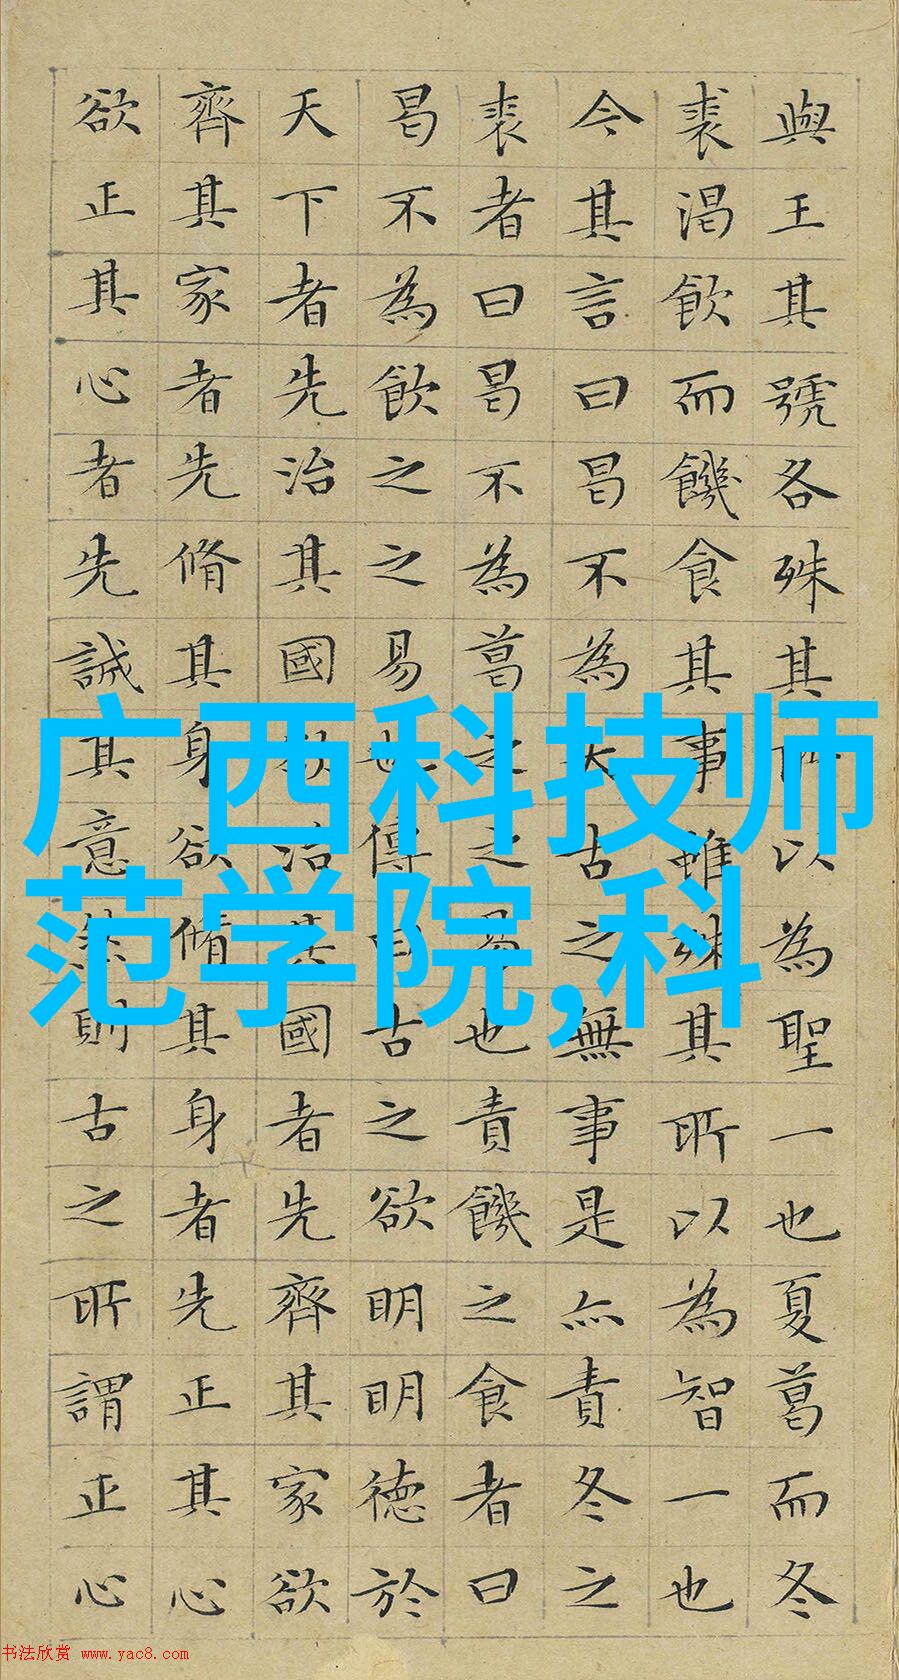 與王其號各殊其所以為聖一也夏葛而冬
裘渴飲而饑食其事雖殊其所以為智一也
今其言曰曷不為太古之無事是亦責冬之
裘者曰曷不為葛之之易也責饑之食者曰
曷不為飲之之易也傳曰古之欲明明德於
天下者先治其國欲治其國者先齊其家欲
齊其家者先脩其身欲脩其身者先正其心
欲正其心者先誠其意然則古之所謂正心
广西科技师
范学院,科
书法欣赏 www.yac8.com